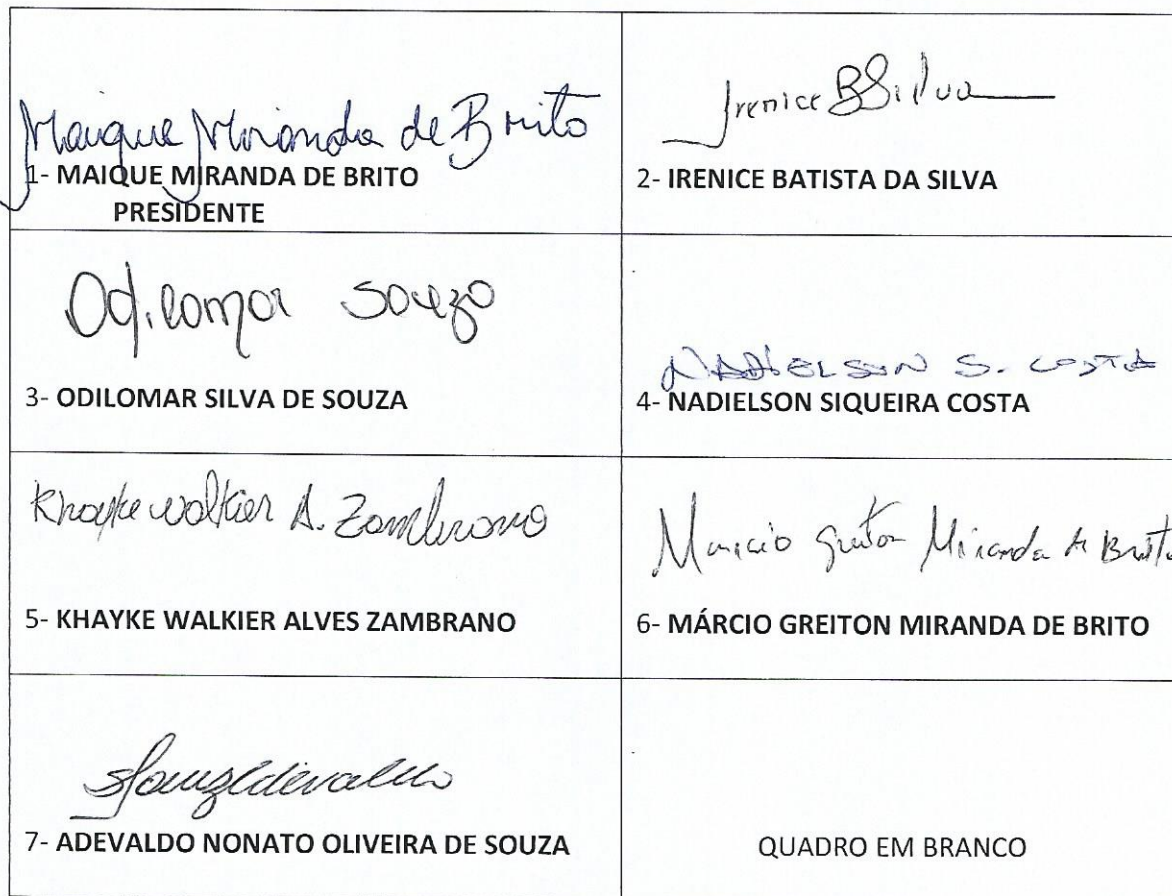 Maique Miranda de Brito
1- MAIQUE MIRANDA DE BRITO
PRESIDENTE
Irenice BSilva
2- IRENICE BATISTA DA SILVA
Odilomar Souza
3- ODILOMAR SILVA DE SOUZA
NADIELSON S. COSTA
4- NADIELSON SIQUEIRA COSTA
Khayke Walkier A. Zambrano
5- KHAYKE WALKIER ALVES ZAMBRANO
Marcio Greiton Miranda de Brito
6- MÁRCIO GREITON MIRANDA DE BRITO
7- ADEVALDO NONATO OLIVEIRA DE SOUZA
QUADRO EM BRANCO